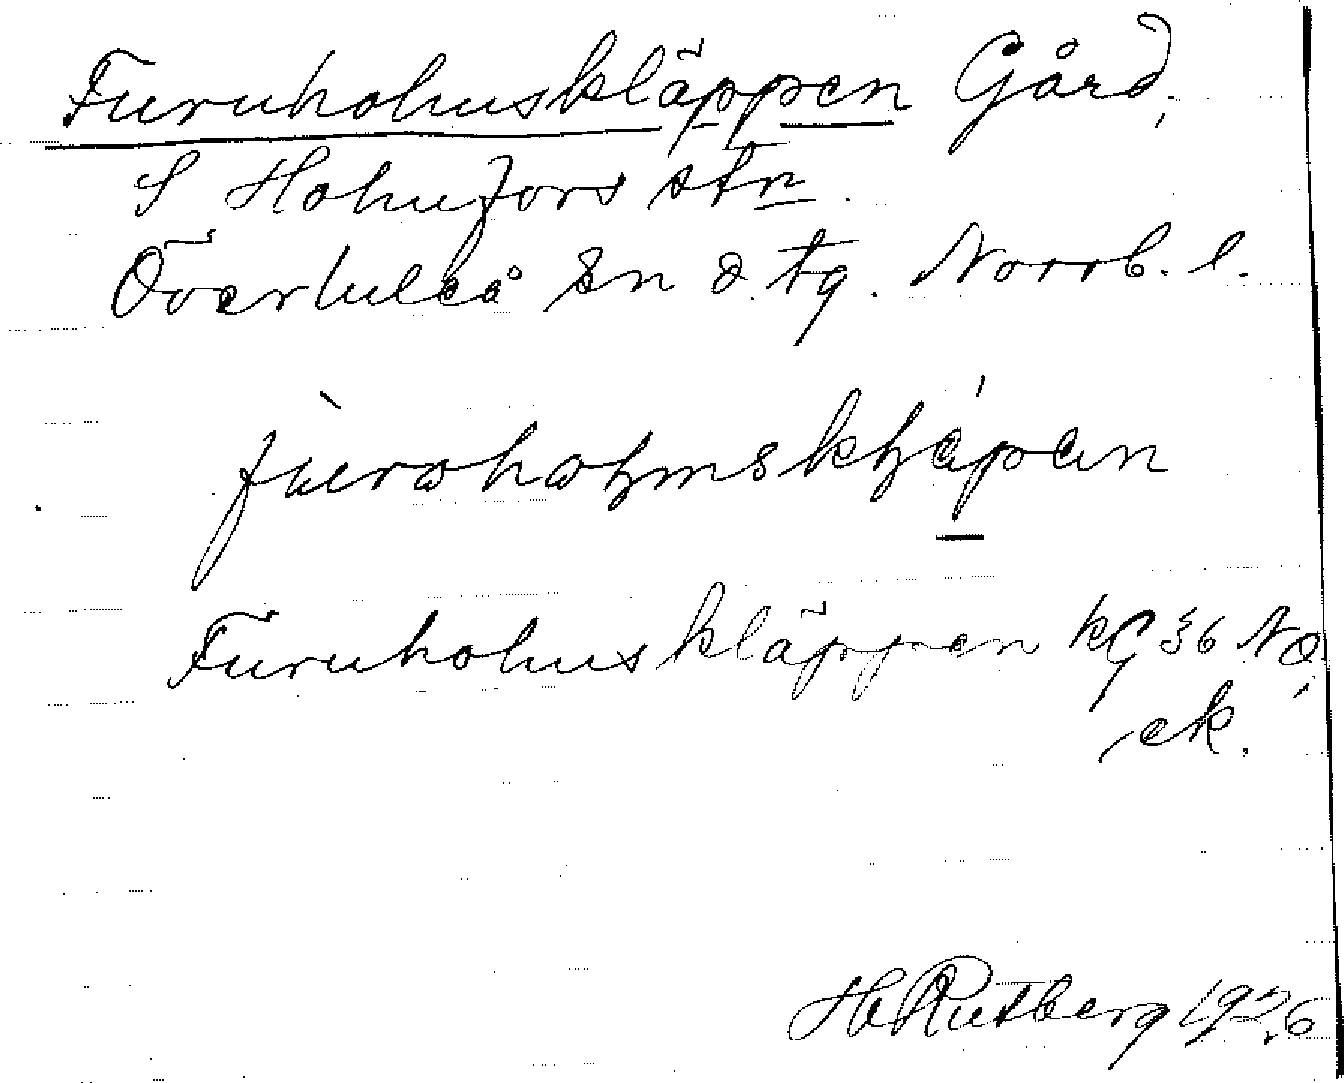 Furuholmskläppen Gård,
S Holmfors stn.
Överluleå sn ö. tg. Norrb. l.
Furuholmskläppen kG 36 NO
ek.
H Rutberg 1926